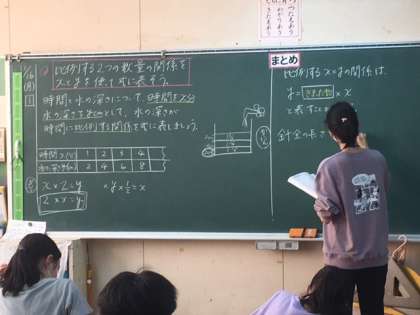 比例する2つの数量の関係を
xとyを使って式で表そう。
時間と水の深さについて、時間をx分
水の深さをycmとして、水の深さが
時間に比例する関係を式に表しましょう。
時間x(分) 1 2 3 4
水の深さy(cm) 2 4 6 8
x×2=y
2×x=y
y×1/2=x
まとめ
比例するxとyの関係は、
y=きまった数×x
と表すこと
針金の長さ